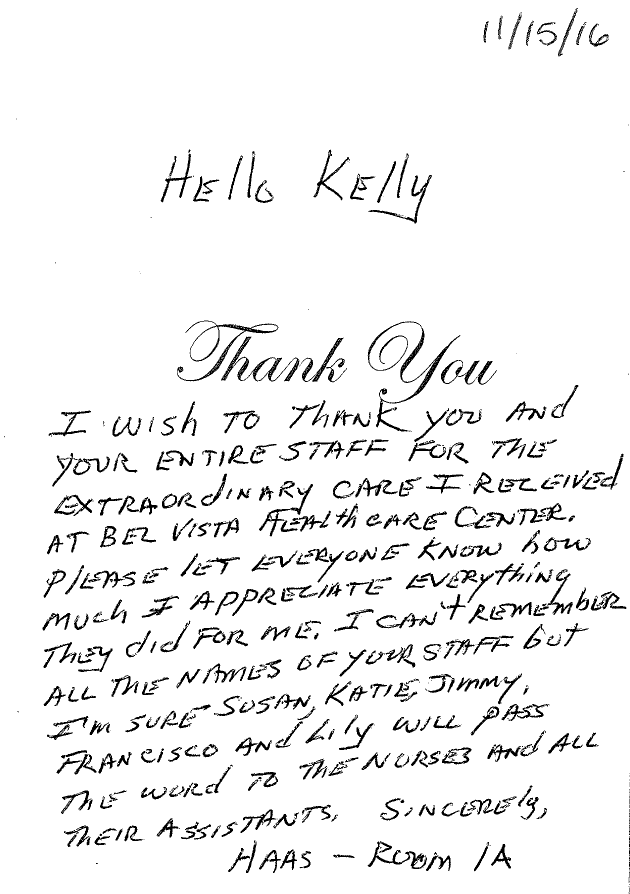 11/15/16
Hello Kelly
Thank You
I wish to thank you and
your entire staff for the
extraordinary care I received
at Bel Vista Healthcare Center.
Please let everyone know how
much I appreciate everything
they did for me. I can't remember
all the names of your staff but
I'm sure Susan, Katie, Jimmy,
Francisco and Lily will pass
the word to the nurses and all
their assistants. Sincerely,
Haas - Room 1A